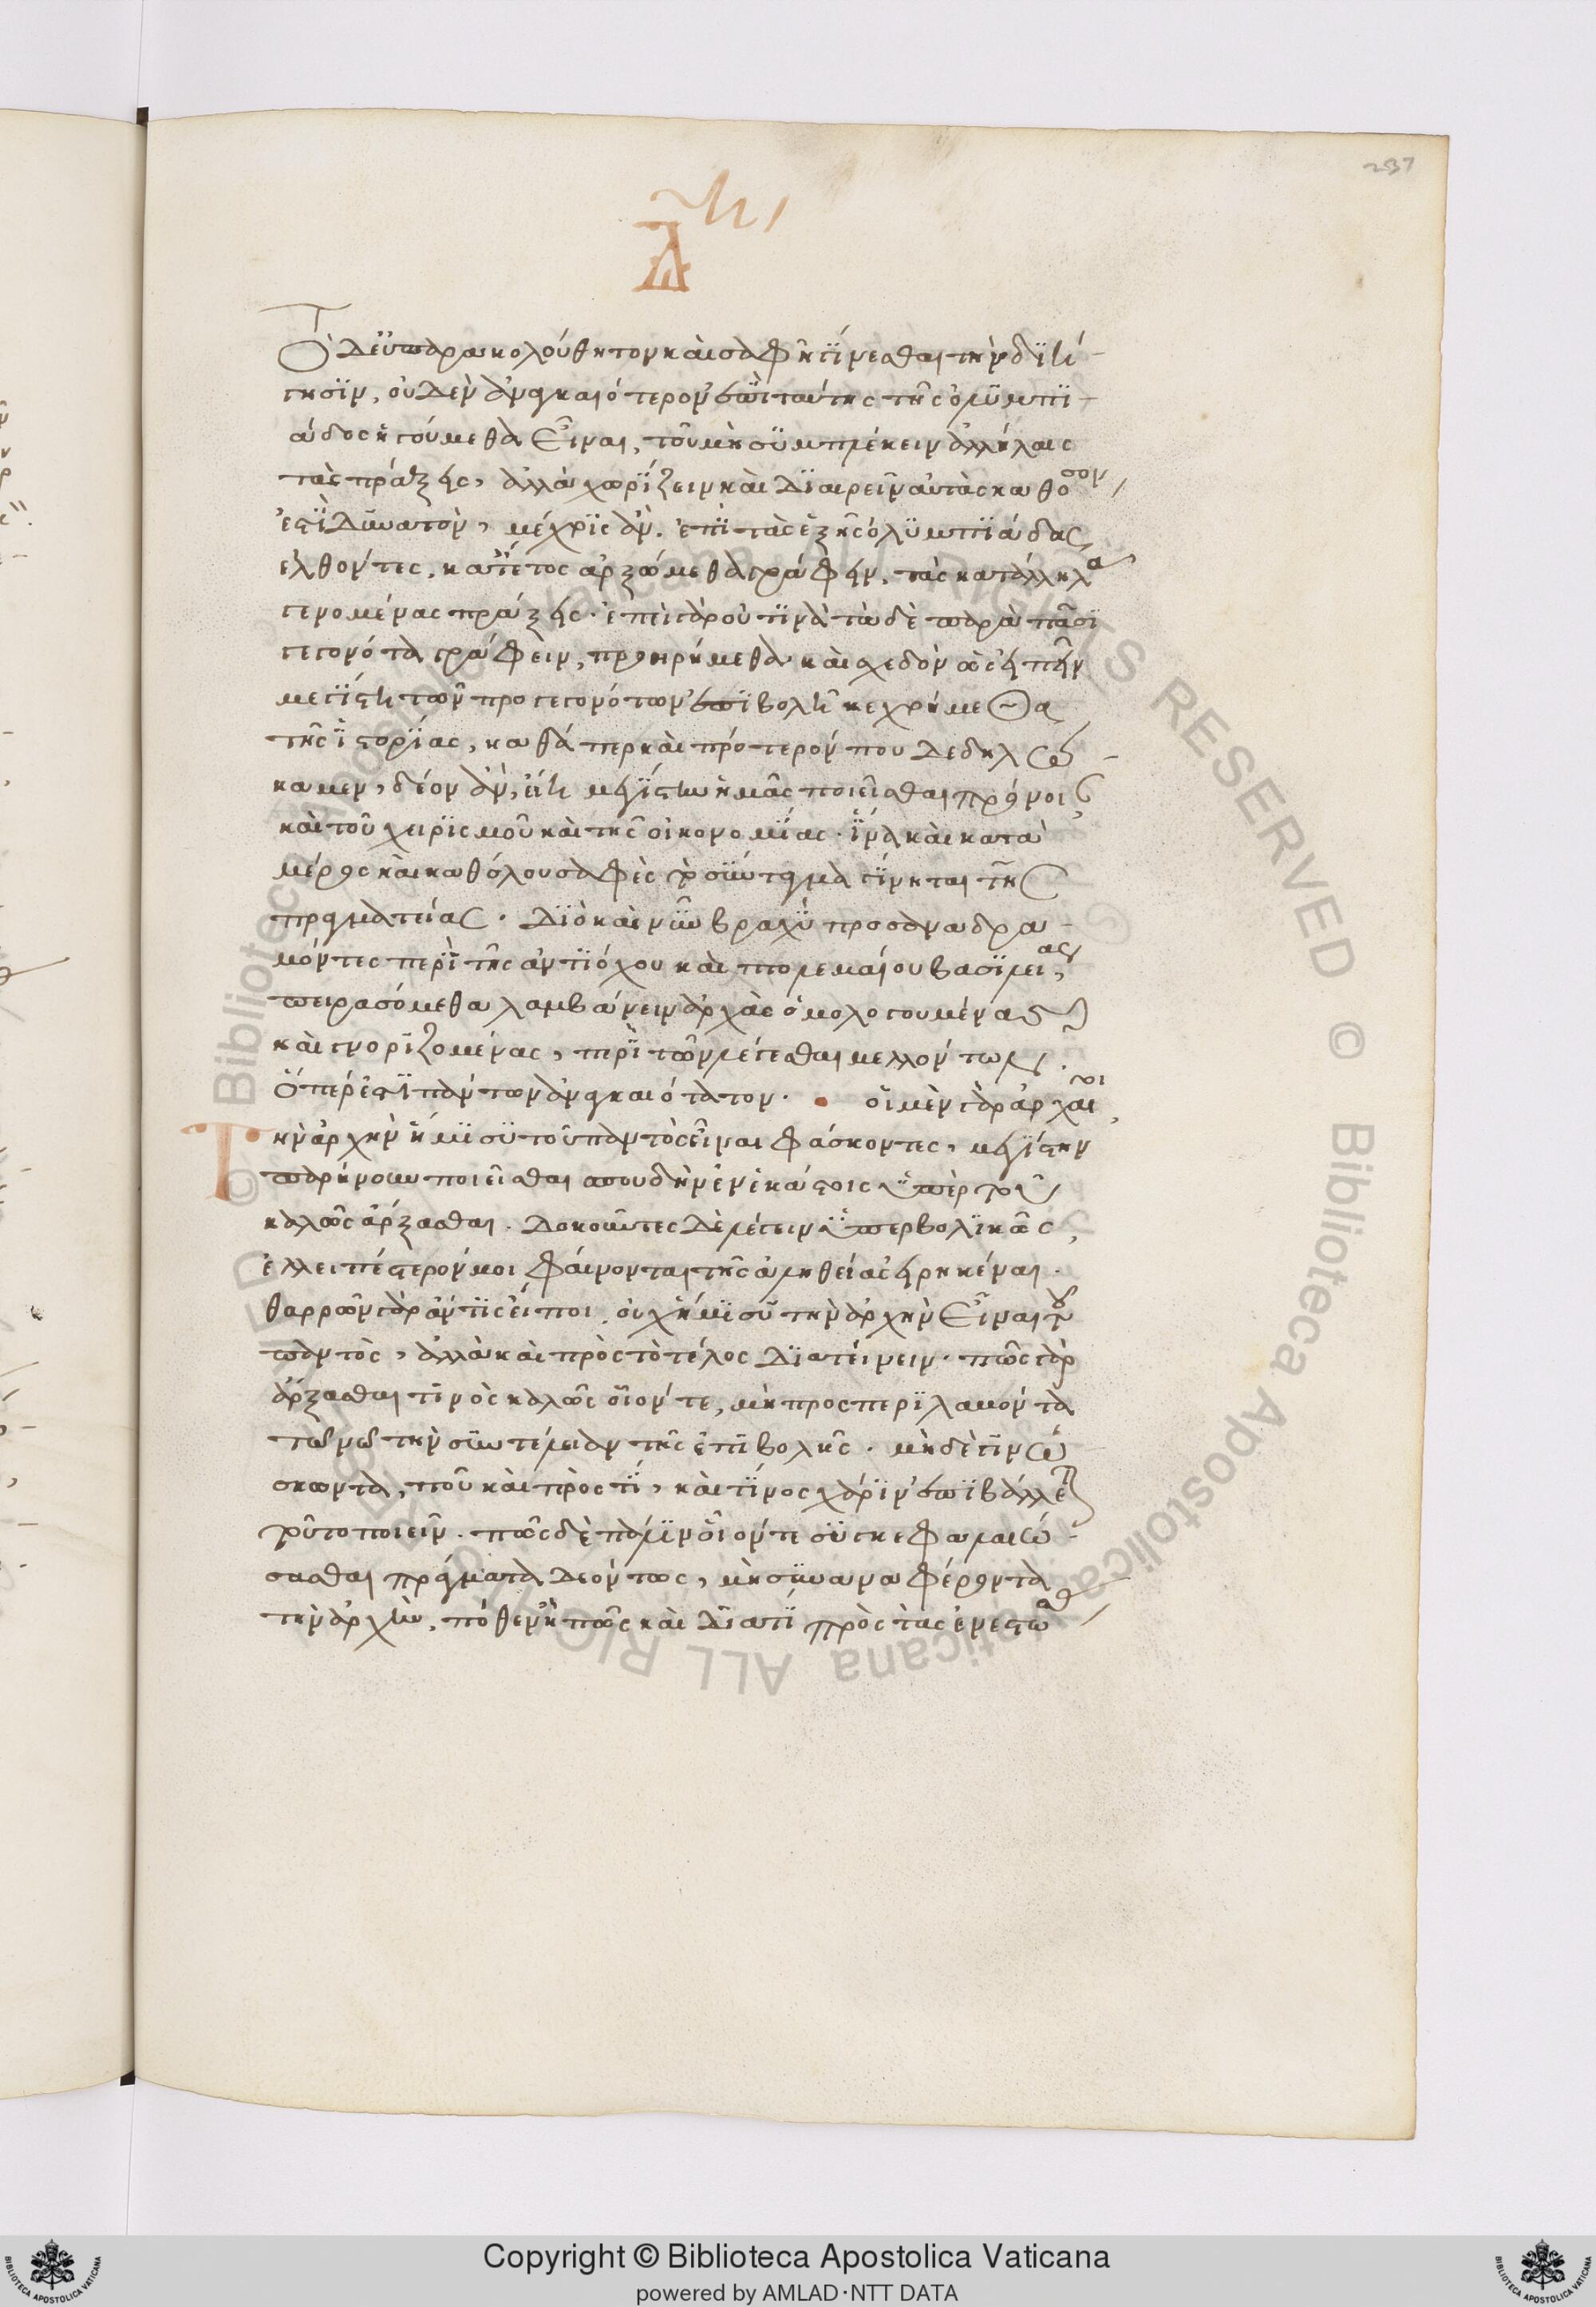 237
Τοῦ δ' εὐπαρακολούθητον καὶ σαφῆ γίνεσθαι τὴν διή-
γησιν, οὐδὲν ἀναγκαιότερον ἐπὶ ταύτης τῆς ὀλυμπι-
άδος ἡγούμεθα εἶναι, τοῦ μὴ συμπλέκειν ἀλλήλαις
τὰς πράξεις, ἀλλὰ χωρίζειν καὶ διαιρεῖν αὐτὰς καθ' ὅσον
ἐστὶ δυνατόν, μέχρις ἂν ἐπὶ τὰς ἑξῆς ὀλυμπιάδας
ἐλθόντες, κατ' ἔτος ἀρξώμεθα γράφειν, τὰς κατάλληλα
γενομένας πράξεις. ἐπεὶ γὰρ οὐ τινὰ τὰ δὲ παρὰ πᾶσι
γεγονότα γράφειν, προηρήμεθα καὶ σχεδὸν ὡς εἰπεῖν
μεγίστη τῶν προγεγονότων ἐπιβολῇ κεχρήμεθα
τῆς ἱστορίας, καθάπερ καὶ πρότερόν που δεδηλώ-
καμεν, δέον ἂν, εἴη μεγίστην ἡμᾶς ποιεῖσθαι πρόνοιαν
καὶ τοῦ χειρισμοῦ καὶ τῆς οἰκονομίας. ἵνα καὶ κατὰ
μέρος καὶ καθόλου σαφὲς τὸ σύνταγμα γίνηται τῆς
πραγματείας. διὸ καὶ νῦν βραχὺ προσαναδρα-
μόντες περὶ τῆς ἀντιόχου καὶ πτολεμαίου βασιλείας,
πειρασόμεθα λαμβάνειν ἀρχὰς ὁμολογουμένας
καὶ γνοριζομένας, περὶ τῶν λέγεσθαι μελλόντων.
ὅπερ ἐστὶ πάντων ἀναγκαιότατον. οἱ μὲν γὰρ ἀρχαῖοι
τὴν ἀρχὴν ἥμισυ τοῦ παντὸς εἶναι φάσκοντες, μεγίστην
παρήνουν ποιεῖσθαι σπουδὴν ἐν ἑκάστοις ὑπὲρ τοῦ
καλῶς ἄρξασθαι. δοκοῦντες δὲ λέγειν ὑπερβολικῶς,
ἐλλειπέστερόν μοι φαίνονται τῆς ἀληθείας εἰρηκέναι.
θαρρῶν γὰρ ἄν τις εἴποι, οὐχ ἥμισυ τὴν ἀρχὴν εἶναι τοῦ
παντὸς, ἀλλὰ καὶ πρὸς τὸ τέλος διατείνειν. πῶς γὰρ
ἄρξασθαι τινὸς καλῶς οἷόν τε, μὴ προσπεριλαβόντα
τῷ νῷ τὴν συντέλειαν τῆς ἐπιβολῆς. μὴ δὲ γινώ
σκοντα, ποῦ καὶ πρὸς τί, καὶ τίνος χάριν ἐπιβάλλεται
τοῦτο ποιεῖν. πῶς δὲ πάλιν οἷόν τε συγκεφαλαιώ-
σασθαι πράγματα δεόντως, μὴ συναναφέροντα
τὴν ἀρχὴν, πόθεν ἢ πῶς καὶ διατί πρὸς τὰς ἐνεστώσας